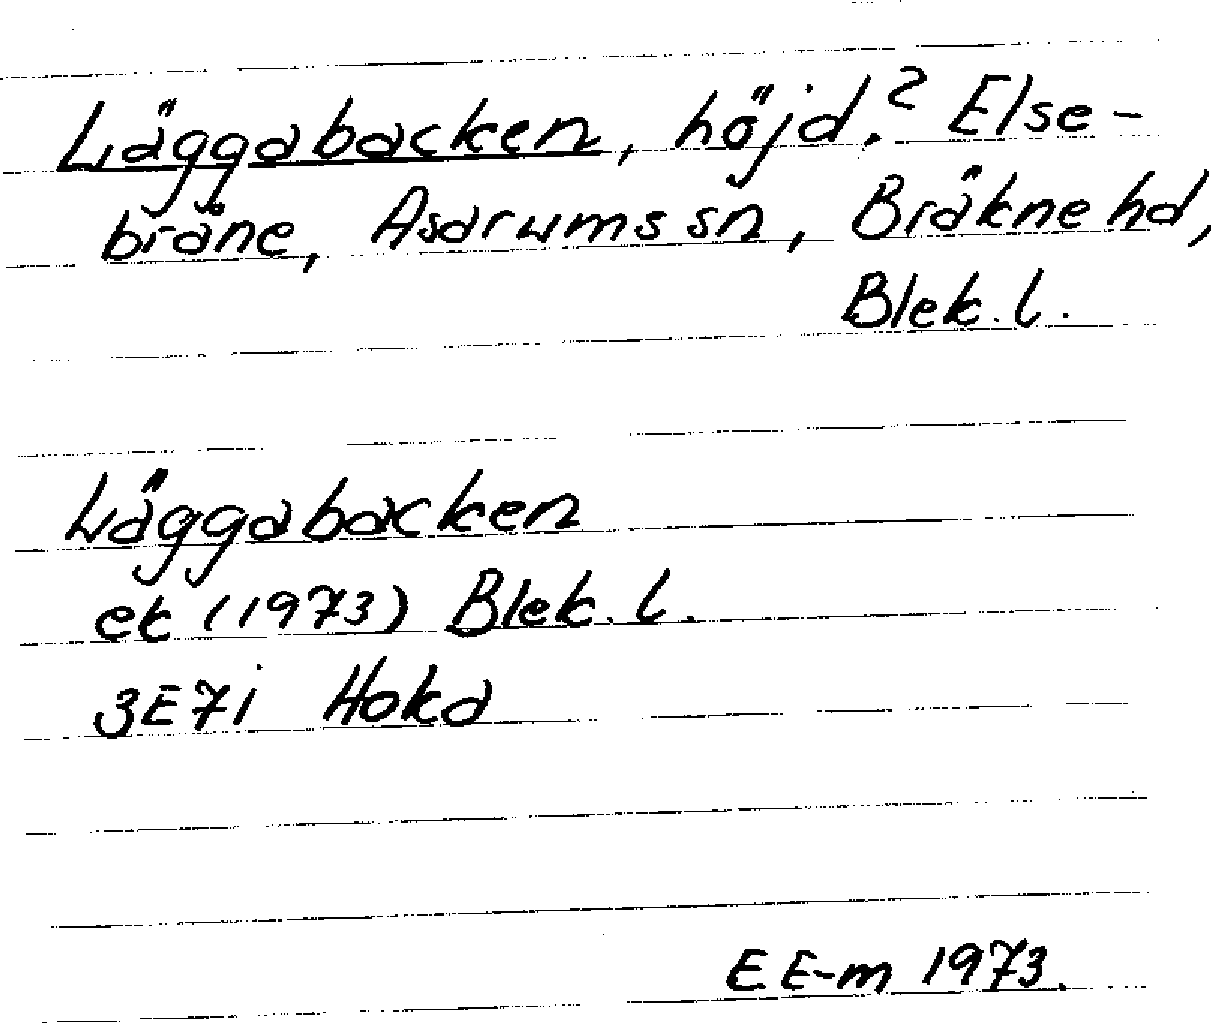 Läggabacken, höjd? Else-
bräne, Asarums sn, Bräkne hd,
Blek. l.
Läggabacken
ek (1973) Blek. l.
3E7i Hoka
E E-m 1973.